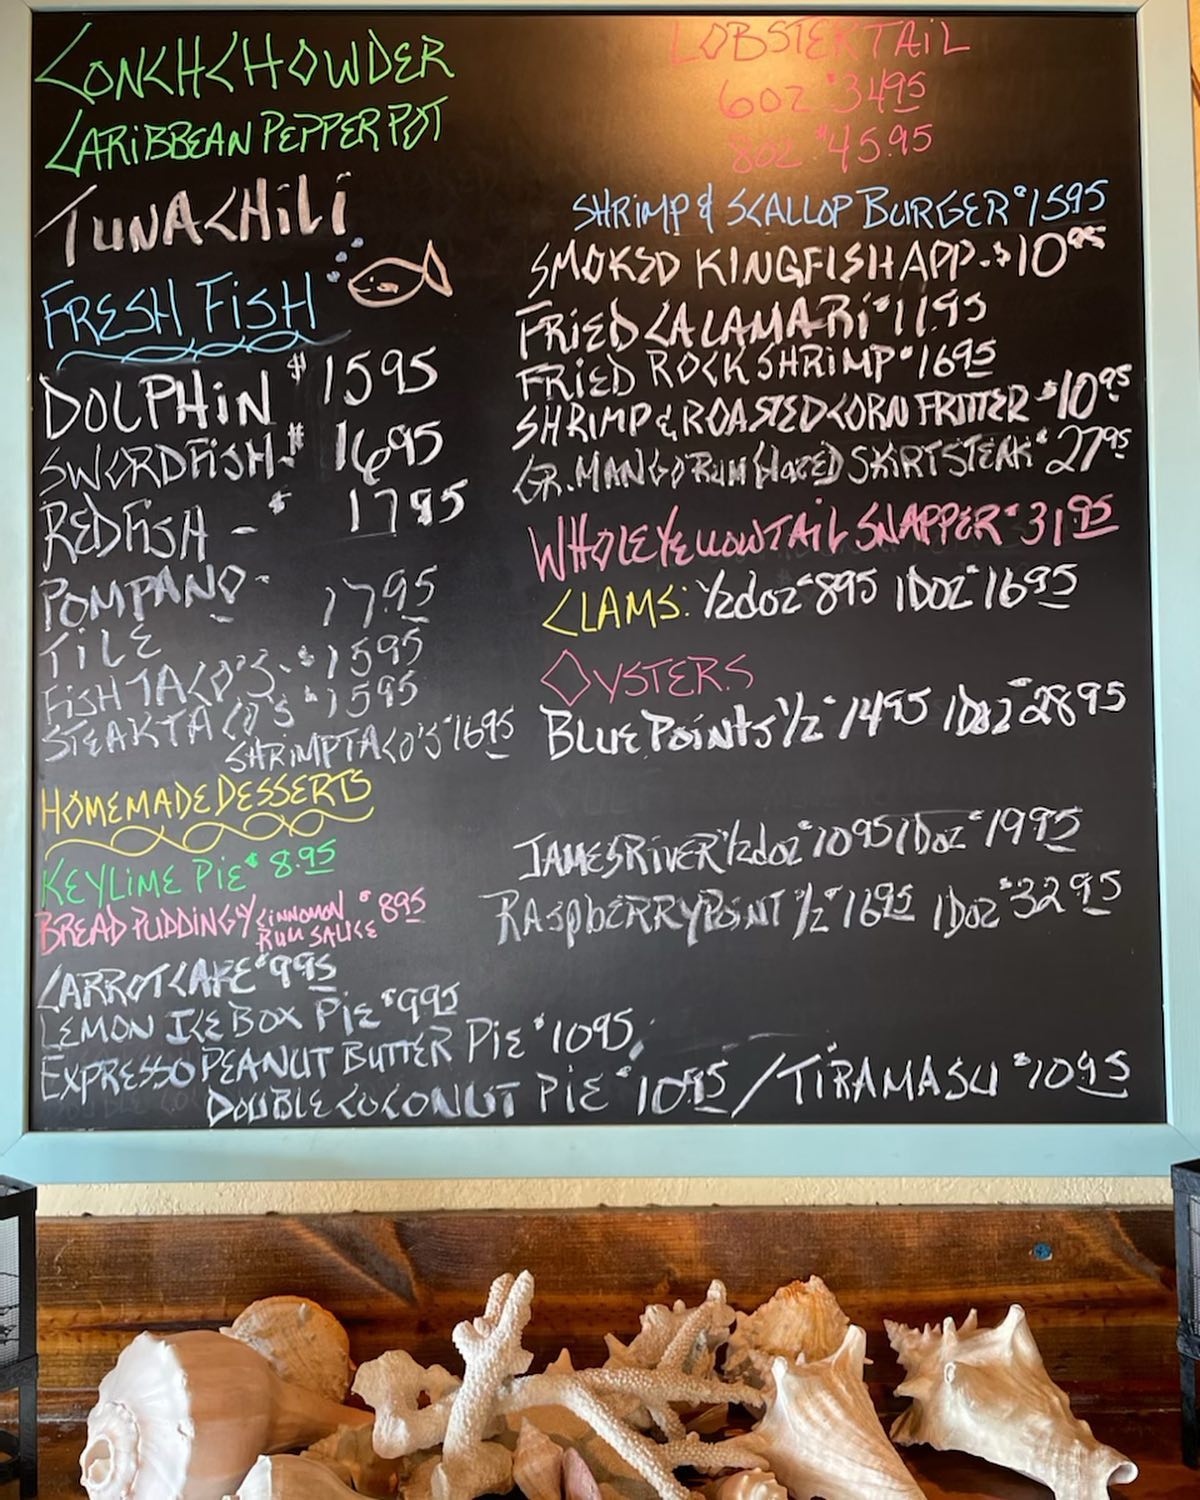 CONCH CHOWDER
CARIBBEAN PEPPER POT
TUNA CHILI
FRESH FISH
DOLPHIN $1595
SWORDFISH-$ 1695
REDFISH - $ 1795
POMPANO- 1795
TILE
FISH TACO'S-$1595
STEAK TACO'S $1595
SHRIMP TACO'S $1695
HOMEMADE DESSERTS
KEYLIME PIE $8.95
BREAD PUDDING W/ CINNOMON RUM SAUCE $895
CARROT CAKE $995
LEMON ICE BOX PIE $995
EXPRESSO PEANUT BUTTER PIE $1095
DOUBLE COCONUT PIE $10.95 / TIRAMASU $1095
LOBSTER TAIL
6OZ $3495
8OZ $45.95
SHRIMP & SCALLOP BURGER $1595
SMOKED KINGFISH APP.-$10 95
FRIED CALAMARI $11.95
FRIED ROCK SHRIMP $1695
SHRIMP & ROASTED CORN FRITTER $10 95
GR. MANGO RUM GLAZED SKIRT STEAK $27 95
WHOLE YELLOWTAIL SNAPPER $31.95
CLAMS: 1/2 doz $895 1 DOZ $1695
OYSTERS
BLUE POINTS 1/2 $1495 1 DOZ $2895
JAMES RIVER 1/2 doz $1095 1 DOZ $1995
RASPBERRY POINT 1/2 $1695 1 DOZ $3295